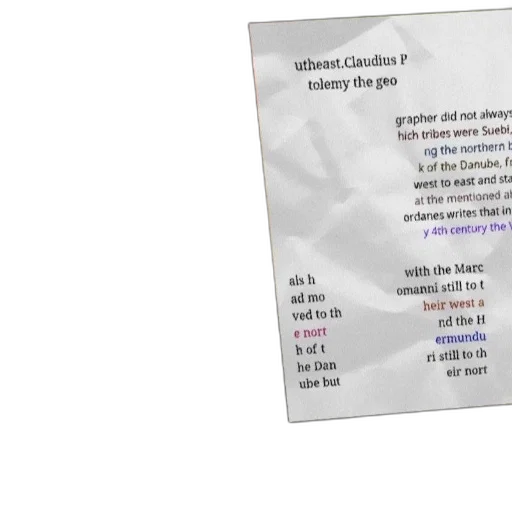 utheast.Claudius P
tolemy the geo
grapher did not always
hich tribes were Suebi,
ng the northern b
k of the Danube, fr
west to east and sta
at the mentioned ab
ordanes writes that in
y 4th century the V
als h
ad mo
ved to th
e nort
h of t
he Dan
ube but
with the Marc
omanni still to t
heir west a
nd the H
ermundu
ri still to th
eir nort